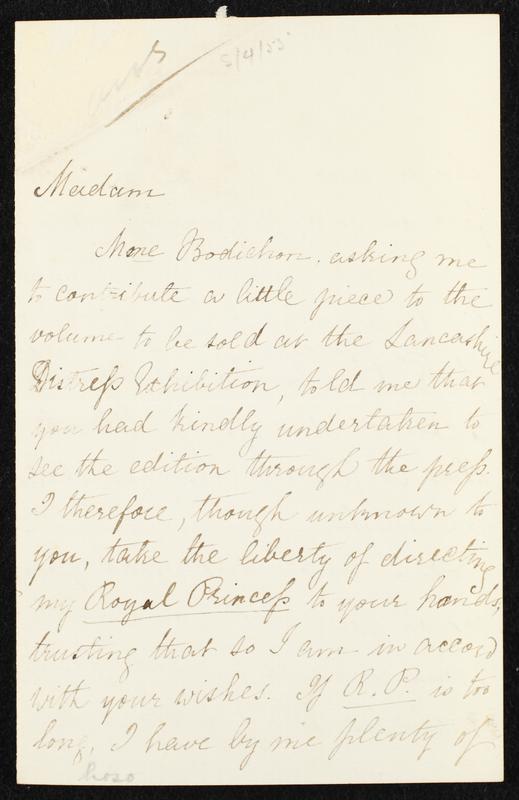 5/4/55
Madam
Mme Bodichon, asking me
to contribute a little piece to the
volume to be sold at the Lancashire
Distress Exhibition, told me that
you had kindly undertaken to
see the edition through the press.
I therefore, though unknown to
you, take the liberty of directing
my Royal Princess to your hands,
trusting that so I am in accord
with your wishes. If R. P. is too
long, I have by me plenty of